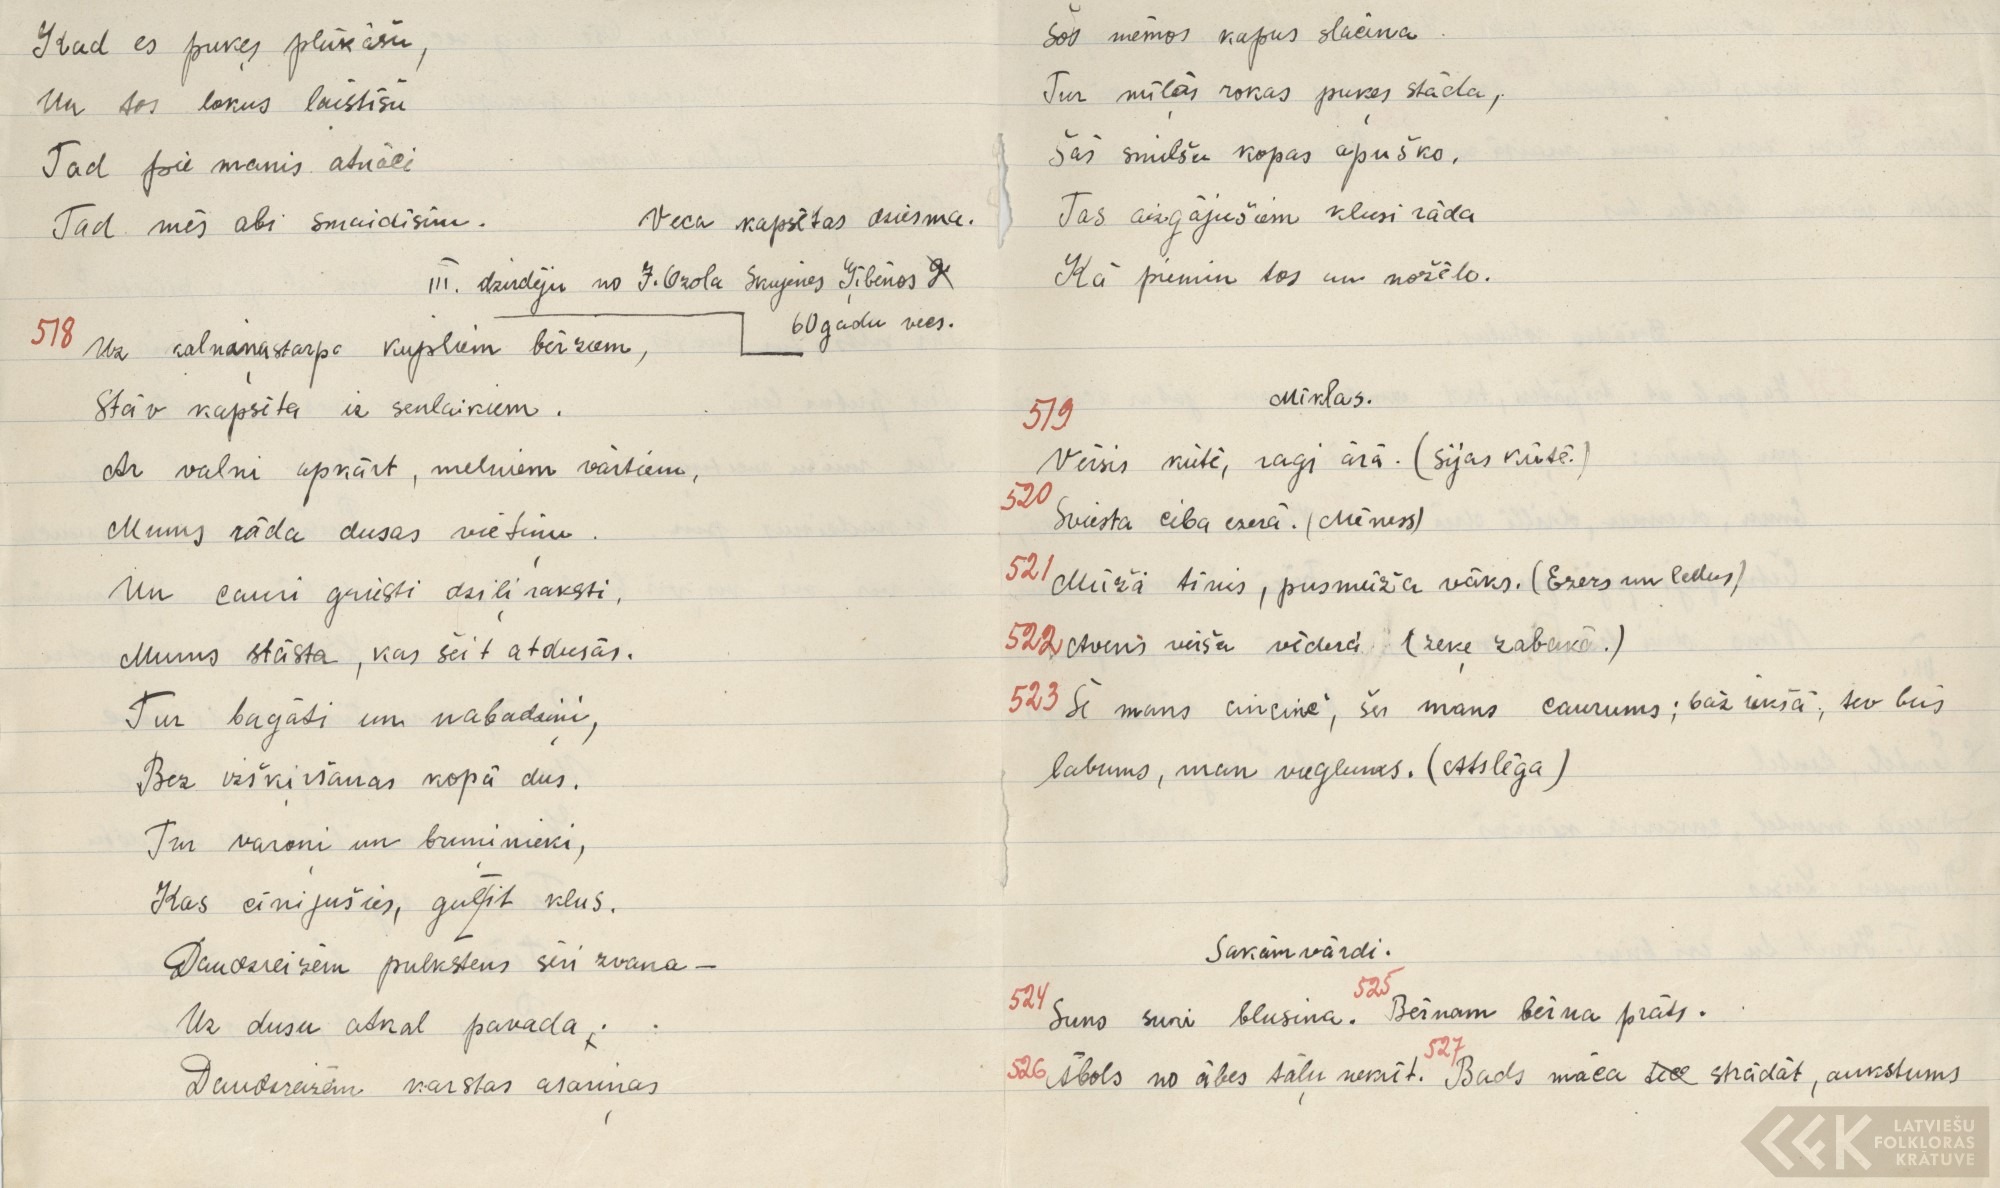 Kad es puķes plūkāšu,
Un tos lokus laistīšu
Tad pie manis atnāci
Tad mēs abi smaidīsim.
Veca kapsētas dziesma.
III. dzirdēju no J. Ozola Skujenes Ģibēnos
60 gadu vecs.
518
Uz kalniņa starp kupliem bērziem,
Stāv kapsēta iz senlaikiem.
Ar valni apkārt, melniem vārtiem,
Mums rāda dusas vietiņu.
Un cauri griesti dziļi raksti,
Mums stāsta, kas šeit atdusās.
Tur bagāti un nabadziņi,
Bez izšķiršanas kopā dus.
Tur varoņi un bruņinieki,
Kas cīnijušies, guļ it klus.
Daudzreizēm pulkstens sēri zvana –
Uz dusu atkal pavada,
Daudzreizēm karstas asariņas
Šos mēmos kapus slacina.
Tur mīļās rokas puķes stāda,
Šās smilšu kopas apuško,
Tas aizgājušiem klusi rāda
Kā piemin tos un nožēlo.
Mīklas.
519
Vērsis kūtē, ragi ārā. (Sijas kūtē.)
520 Sviesta ciba ezerā. (Mēness)
521 Mūžā tīnis, pusmūža vāks. (Ezers un ledus)
522 Avens vērša vēderā (zeķe zabakā.)
523 Šī mans cincinē, šis mans caurums; bāz iekšā, tev būs
labums, man vieglums. (Atslēga)
Sakāmvārdi.
524 Suns suni blusina. 525 Bērnam bērna prāts.
526 Ābols no ābes tāļu nekrīt. 527 Bads māca strādāt, aukstums
LATVIEŠU
FOLKLORAS
KRĀTUVE